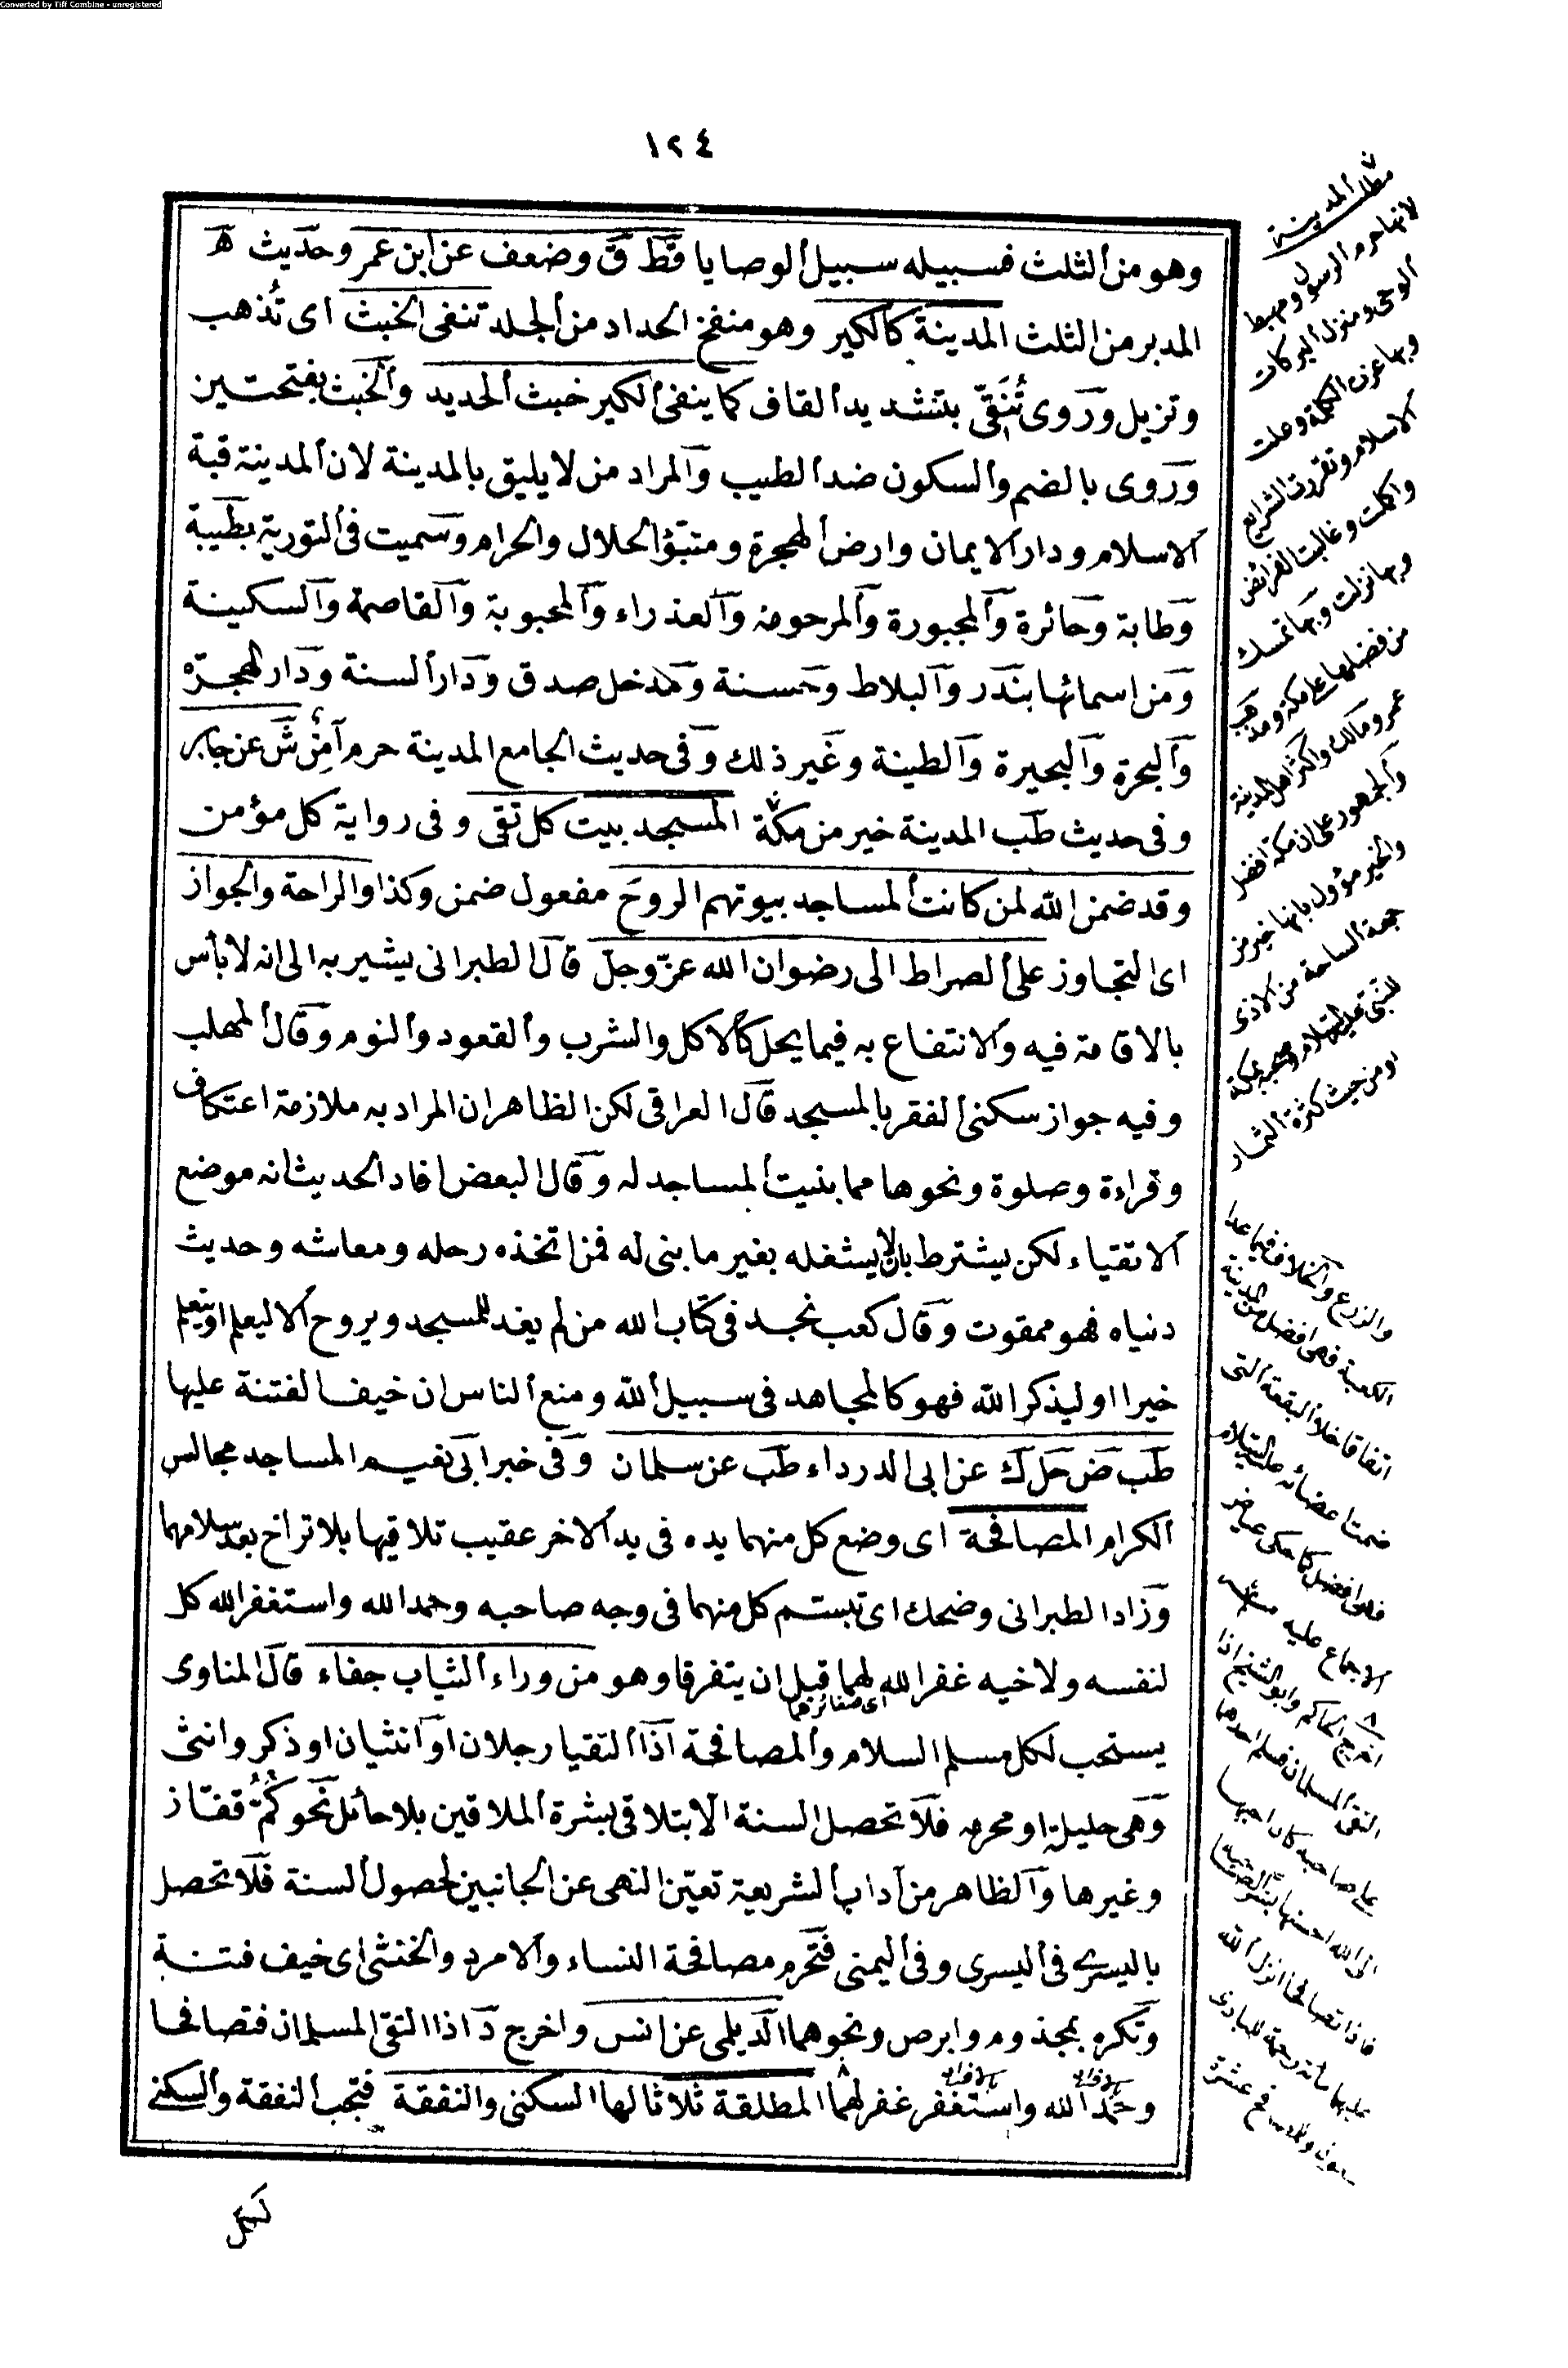 Converted by Tiff Combine - unregistered
١٢٤
وهو من الثلث فسبيله سبيل الوصايا قط ق وضعف عن ابن عمر وحديث ه
المدبر من الثلث المدينة كالكير وهو منفخ الحداد من الجلد تنفى الخبث اى تُذهب
وتزيل وروى تُنَقّى بتشديد القاف كما ينفى الكير خبث الحديد والخبث بفتحتين
وروى بالضم والسكون ضد الطيب والمراد من لا يليق بالمدينة لان المدينة قبة
الاسلام ودار الايمان وارض الهجرة ومتبؤ الحلال والحرام وسميت فى التورية بطيبة
وطابة وحائرة والمجبورة والمرحومة والعذراء والمحبوبة والقاصمة والسكينة
ومن اسمائها بندر والبلاط وحسنة ومدخل صدق ودار السنة ودار الهجرة
والبحرة والبحيرة والطيبة وغير ذلك وفى حديث الجامع المدينة حرم آمن ش عن جابر
وفى حديث طب المدينة خير من مكة المسجد بيت كل تقى وفى رواية كل مؤمن
وقد ضمن الله لمن كانت المساجد بيوتهم الروحَ مفعول ضمن وكذا والراحة والجواز
اى التجاوز على الصراط الى رضوان الله عز وجل قال الطبرانى يشير به الى انه لا بأس
بالاقامة فيه والانتفاع به فيما يحل كالاكل والشرب والقعود والنوم وقال المهلب
وفيه جواز سكنى الفقر بالمسجد قال العراقى لكن الظاهر ان المراد به ملازمة اعتكاف
وقراءة وصلوة ونحوها مما بنيت المساجد له وقال البعض افاد الحديث انه موضع
الاتقياء لكن يشترط بان لا يشغله بغير ما بنى له فمن اتخذه رحله ومعاشه وحديث
دنياه فهو ممقوت وقال كعب نجد فى كتاب الله من لم يغد للمسجد ويروح الا ليعلم او يتعلم
خيرا او ليذكر الله فهو كالمجاهد فى سبيل الله ومنع الناس ان خيف الفتنة عليها
طب ض حل ك عن ابى الدرداء طب عن سلمان وفى خبر ابى نعيم المساجد مجالس
الكرام المصافحة اى وضع كل منهما يده فى يد الاخر عقيب تلاقيها بلا تراخ بعد سلامهما
وزاد الطبرانى وضحك اى تبسم كل منهما فى وجه صاحبه وحمد الله واستغفر الله كل
لنفسه ولاخيه غفر الله لهما قبل ان يتفرقا وهو من وراء الثياب جفاء قال المناوى
اى صغائرهما
يستحب لكل مسلم السلام والمصافحة اذا التقيا رجلان او انثيان او ذكر وانثى
وهى حليلة او محرم فلا تحصل السنة الا بتلاقى بشرة الملاقين بلا حائل نحو كُمّ قفاز
وغيرها والظاهر من آداب الشريعة تعين اليمنى عن الجانبين لحصول السنة فلا تحصل
باليسرى فى اليسرى وفى اليمنى فتحرم مصافحة النساء والامرد والخنثى اى خيف فتنة
وتكره بمجذوم وابرص ونحوهما الديلمى عن انس واخرج د اذا التقى المسلمان فتصافحا
وحمدا الله واستغفر غفر لهما المطلقة ثلاثا لها السكنى والنفقة فتجب النفقة والسكنى
لكل
مطلب المدينة
لانها حرم الرسول ومهبط
الوحى ومنزل البركات
وبها عزت الكلمة وعلت
الاسلام وتقررت الشرايع
واكملت وغالب الفرائض
وبها نزلت وبها تمسك
من فضلها على مكة ومذهب
عمر ومالك واكثر اهل المدينة
والجمهور على ان مكة افضل
والخبر مؤول بانها خير من
جهة السلامة من الاذى
للنبى عليه السلام وصحبه بمكة
او من حيث كثرة الثمار
والزرع والخلاف فيما عدا
الكعبة فهى افضل من المدينة
اتفاقا خلا البقعة التى
ضمت اعضائه عليه السلام
فهى افضل كما حكى عياض
الاجماع عليه
اخرج الحاكم وابو الشيخ اذا
التقى المسلمان فسلم احدهما
على صاحبه كان احبهما
الى الله احسنهما بشرا لصاحبه
فاذا تصافحا انزل الله
عليهما مائة رحمة للبادى